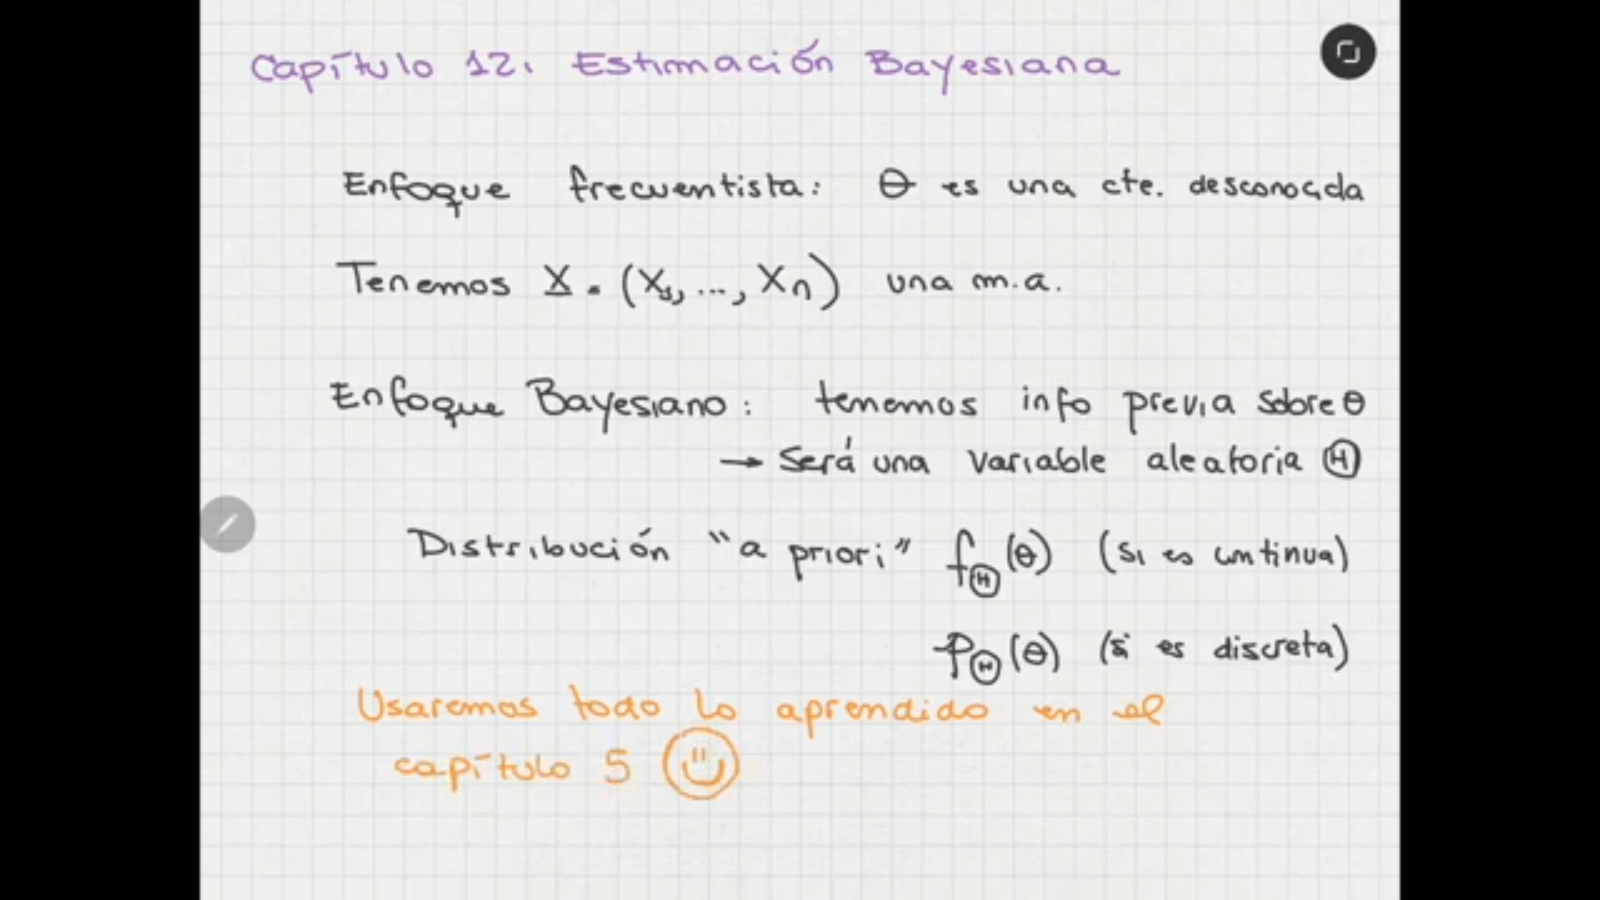 Capítulo 12. Estimación Bayesiana
Enfoque frecuentista: θ es una cte. desconocida
Tenemos X = (X₁, ..., Xn) una m.a.
Enfoque Bayesiano: tenemos info previa sobre θ
→ Será una variable aleatoria Θ
Distribución "a priori" f_Θ(θ) (si es continua)
p_Θ(θ) (si es discreta)
Usaremos todo lo aprendido en el
capítulo 5